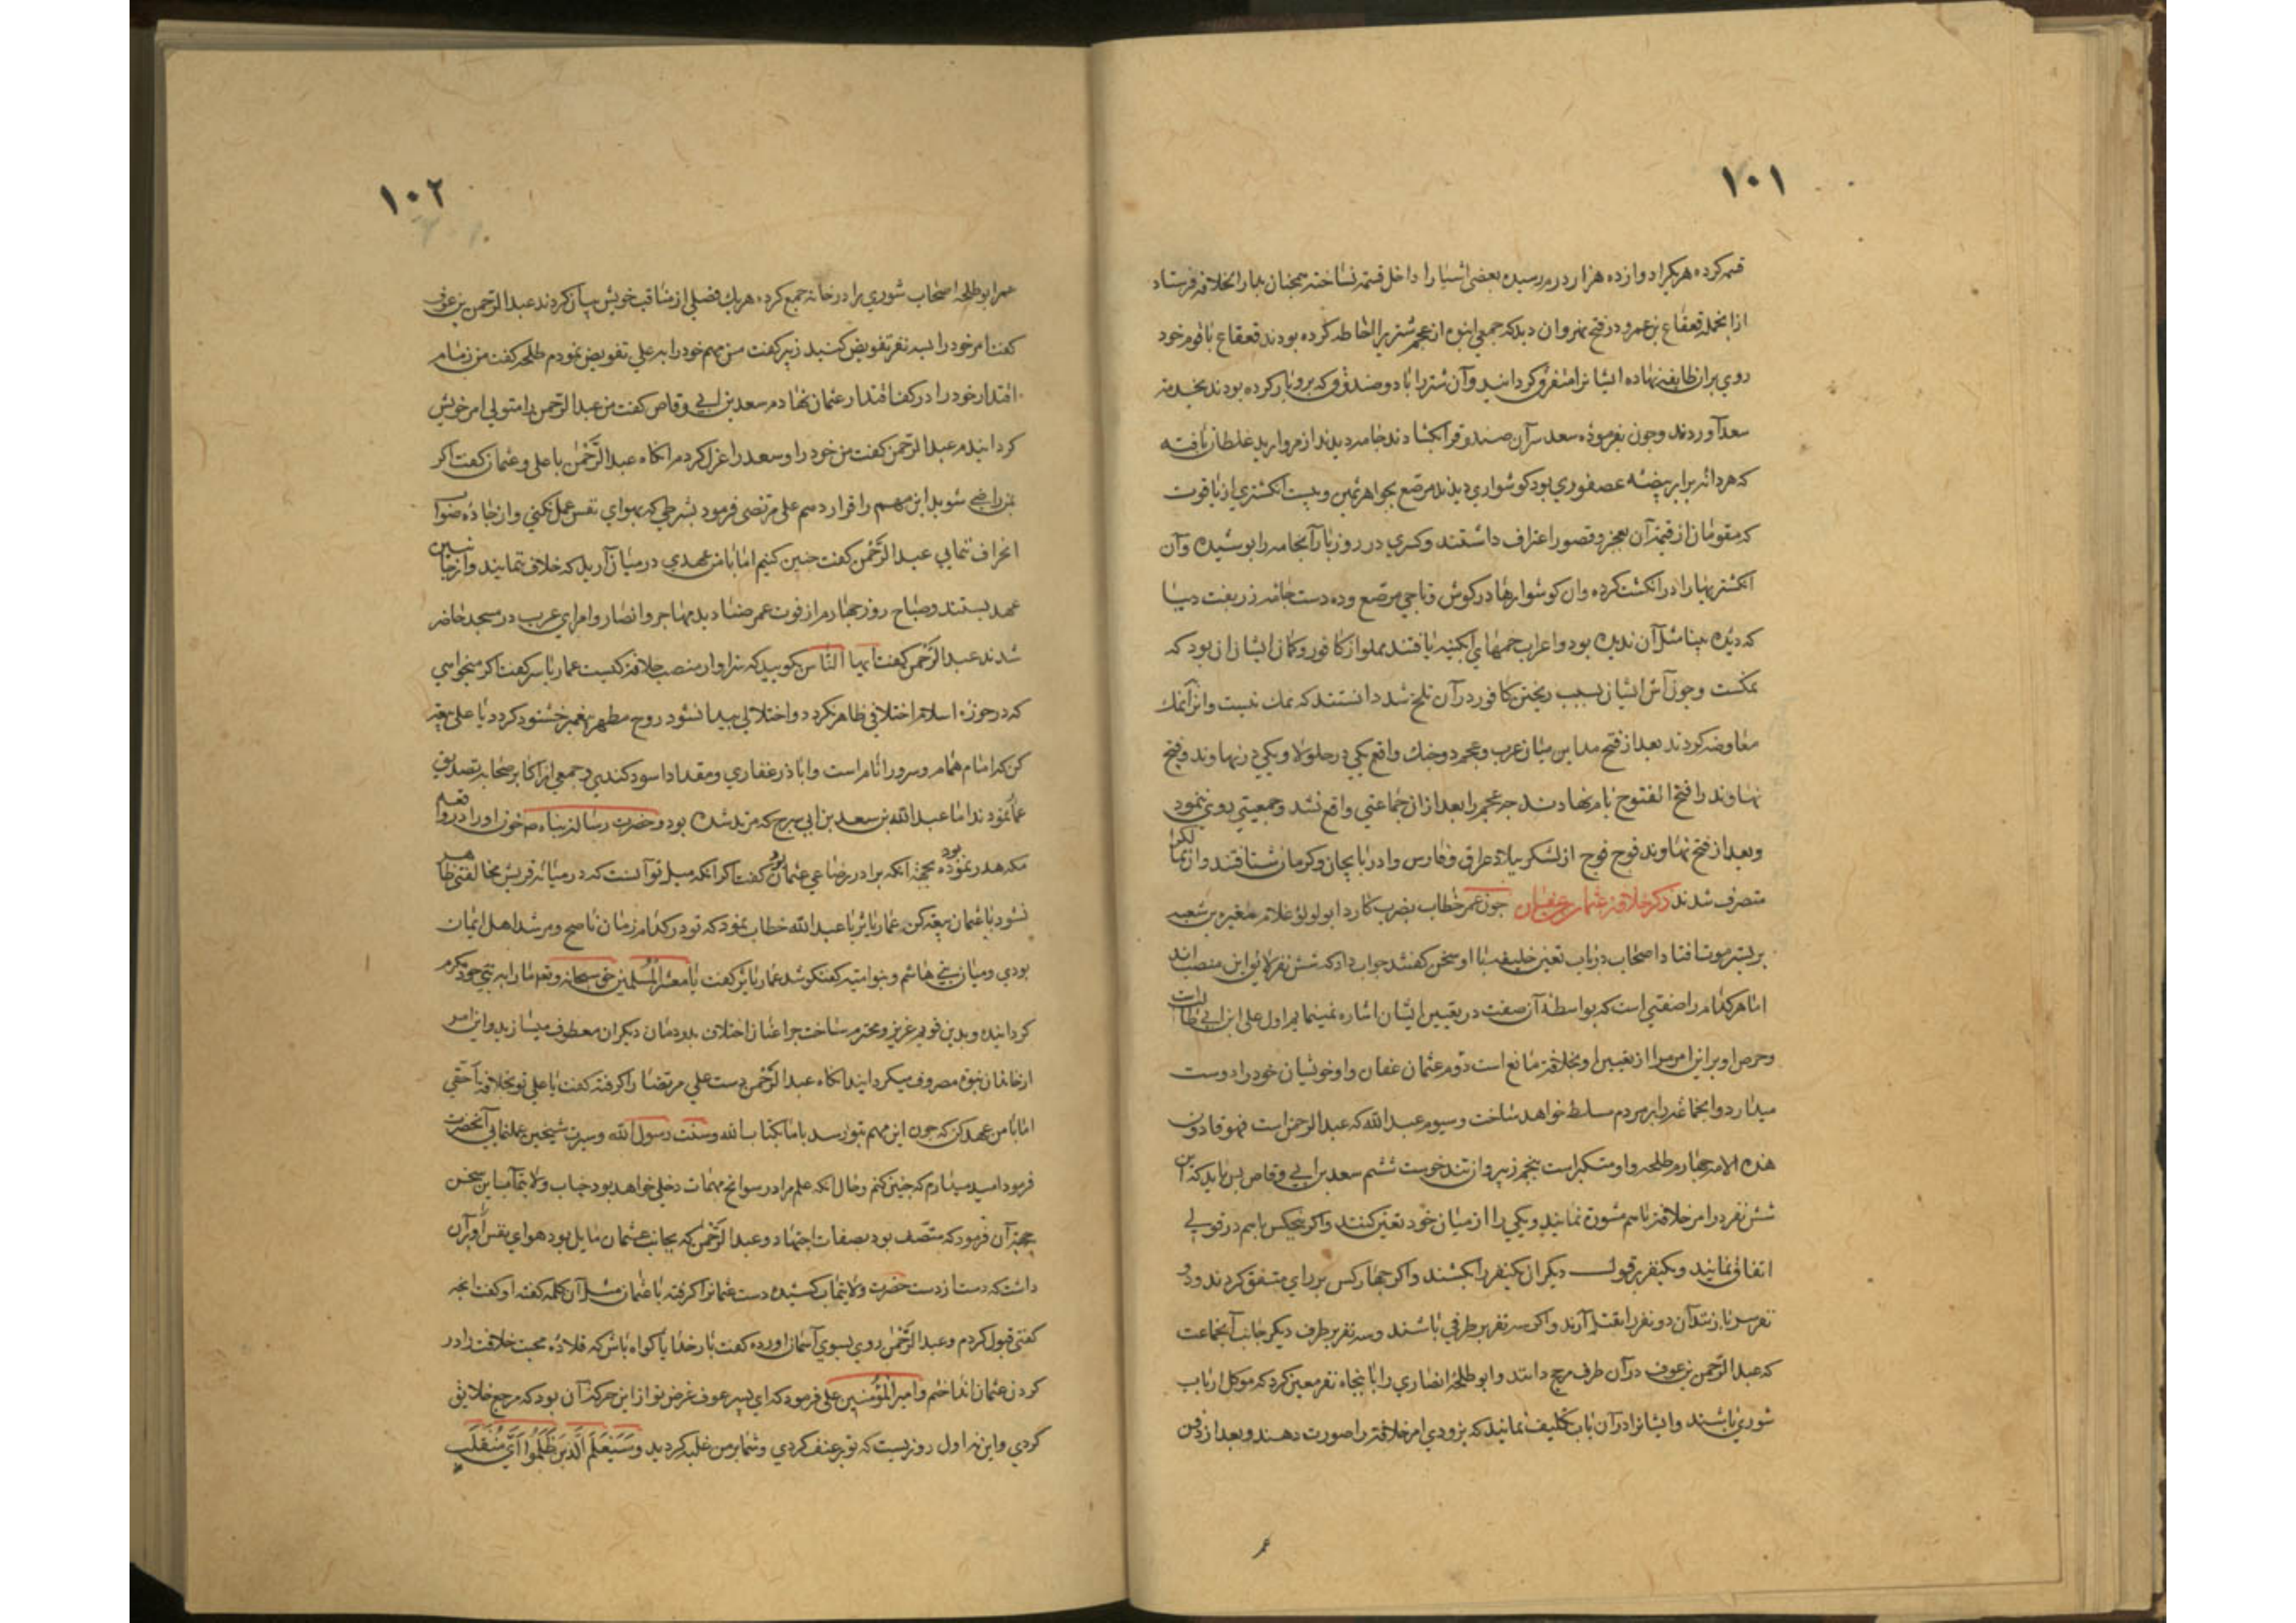 ۱۰۱
قسمة کرده هریکرا دوازده هزار درم رسیده بعضی اشیا را داخل قسمة نساخته همچنان بدار الخلافه فرستاد
ازانجمله قعقاع بن عمرو در فتح نهروان دید که جمعی انبوه از عجم شتریرا احاطه کرده بودند قعقاع با قوم خود
روی بران طایفه نهاده ایشانرا متفرق کردانید وآن شتر را با دو صندوق که برو بار کرده بودند بخدمة
سعد آوردند وچون بفرموده سعد سرآن صندوقرا بکشادند جامه دیدند از مروارید غلطان بافته
که هر دانه برابر بیضه عصفوری بود کوشواری دیدند مرصع بجواهر ثمین وبیست انکشتری از یاقوت
که مقومان از قیمة آن بعجز وقصور اعتراف داشتند وکسری در روز بار آنجامه را پوشیده وآن
انکشتریها را در انکشت کرده وان کوشوارها در کوش وتاجی مرصع وده دست جامه زربفت دیبا
که دیده بینا مثل آن ندیده بود واعراب خمهای ابکینه یافتند مملو از کافور وکمان ایشان ان بود که
نمکست وچون آش ایشان بسبب ریختن کافور در آن تلخ شد دانستند که نمک نیست وانرا بنمک
معاوضه کردند بعد از فتح مداین میان عرب وعجم دو جنک واقع یکی در جلولا ویکی در نهاوند وفتح
نهاوند را فتح الفتوح نام نهادند چه عجم را بعد ازان جماعتی واقع نشد وجمعیتی روی ننمود
وبعد از فتح نهاوند فوج فوج از لشکر ببلاد عراق وفارس وادربایجان وکرمان شتافتند وازممالکرا
متصرف شدند ذکر خلافة عثمان بن عفان چون عمر خطاب بضرب کارد ابولولؤ غلام مغیره بن شعبه
بر بستر موت افتاد اصحاب در باب تعین خلیفه با او سخن کفتند جواب داد که شش نفر لایق این منصب اند
اما هر کدام را صفتی است که بواسطهٔ آن صفت در تعیین ایشان اشاره نمینمایم اول علی ابن ابی طالب
وحرص او برانن امر مرا از تعیین او بخلافة مانع است دوم عثمان عفان واو خویشان خود را دوست
میدارد وانجماعة را بر مردم مسلط خواهد ساخت وسیوم عبدالله که عبدالرحمن است فهو قارون
هذه الامه چهارم طلحه واو متکبر است پنجم زبیر واو تند خوست ششم سعد بن ابی وقاص پس باید که این
شش نفر در امر خلافة باهم مشورة نمایند ویکی را از میان خود تعین کنند واکر پنجکس باهم در قولی
اتفاق نمایند ویکنفر بر قول دیکر ان یکنفر را بکشند واکر چهار کس بر رای متفق کردند ودو
نفر سر باز زنند آن دو نفر را بقتل آرند واکر سه نفر بر طرفی باشند وسه نفر بر طرف دیکر جانب آنجماعت
که عبدالرحمن بن عوف در آن طرف مرجح دانند وابو طلحهٔ انصاری را با پنجاه نفر معین کرد که موکل ارباب
شوری باشند وایشانرا در آن باب تکلیف نمایند که بزودی امر خلافة را صورت دهند وبعد از دفن
عمر
۱۰۲
عمر ابوطلحه اصحاب شوری را در خانه جمع کرده هریک فضلی از مناقب خویش بیان کردند عبدالرحمن بن عوف
کفت امر خود را بسه نفر تفویض کنید زبیر کفت من مهم خود را به علی تفویض نمودم طلحه کفت من زمام
اقتدار خود را در کف اقتدار عثمان نهادم سعد بن ابی وقاص کفت من عبدالرحمن را متولی امر خویش
کردانیدم عبدالرحمن کفت من خود را وسعد را عزل کردم انکاه عبدالرحمن با علی وعثمان کفت اکر
بمن راضی شوید این مهم را قرار دهم علی مرتضی فرمود بشرطی که بهوای نفس عمل نکنی واز جاده صواب
انحراف ننمایی عبدالرحمن کفت چنین کنیم اما با من عهدی در میان آرید که خلاف ننمایند واز جانبین
عهد بستند وصباح روز چهارم از فوت عمر صنادید مهاجر وانصار وامرای عرب در مسجد حاضر
شدند عبدالرحمن کفت ایها الناس کویید که سزاوار منصب خلافة کیست عمار یاسر کفت اکر میخواهی
که در حوزه اسلام اختلافی ظاهر نکردد واختلالی پیدا نشود روح مطهر پیغمبر خشنود کردد با علی بیعة
کن که امام همام وسرور انام است واباذر غفاری ومقداد اسود کندی وجمعی از اکابر صحابه تصدیق
عمار نمودند اما عبدالله بن سعد بن ابی سرح که مرتد شده بود وحضرت رسالة پناه ص خون او را در واقعه
مکه هدر نموده بود بجهة آنکه برادر رضاعی عثمان بود کفت اکر انکه میل تو آنست که در میانه قریش مخالفتی ظاهر
نشود با عثمان بیعة کن عمار یاسر با عبدالله خطاب نمود که تو در کدام زمان ناصح ومرشد اهل ایمان
بودی ومیان بنی هاشم وبنو امیه کفتکو شد عمار یاسر کفت یا معشر المسلمین حق سبحانه وتع ما را به نبی خود مکرم
کردانیده وبدین قویم عزیز ومحترم ساخت چرا عنان اختلاف بدودمان دیکران معطوف میسازید واین امر
از خاندان نبوة مصروف میکردانید انکاه عبدالرحمن دست علی مرتضا را کرفته کفت یا علی تو بخلافة احقی
اما با من عهد کن که چون این مهم بتو رسد باما بکتاب الله وسنت رسول الله وسیرت شیخین عملنمایی آنحضرت
فرمود امید میدارم که چنین کنم وحال انکه علم مرا در سوانح مهمات دخلی خواهد بود جناب ولایتمآب این سخن
بجهة آن فرمود که متصف بود بصفات اجتهاد وعبدالرحمن که بجانب عثمان مایل بود هوای نفس او را بران
داشت که دست از دست حضرت ولایتمآب کشیده دست عثمانرا کرفته با عثمان مثل آن کلمه کفته او کفت انچه
کفتی قبول کردم وعبدالرحمن روی بسوی آسمان اورده کفت بار خدایا کواه باش که قلادهٔ محبت خلافت را در
کردن عثمان انداختم وامیر المؤمنین علی فرمود که ای پسر عوف غرض تو از این حرکة آن بود که مرجع خلایق
کردی واین نه اول روزیست که تو بر عنف کردی وشما بر من غلبه کردید وَسَیَعْلَمُ الَّذینَ ظَلَمُوا اَیَّ مُنْقَلَبٍ